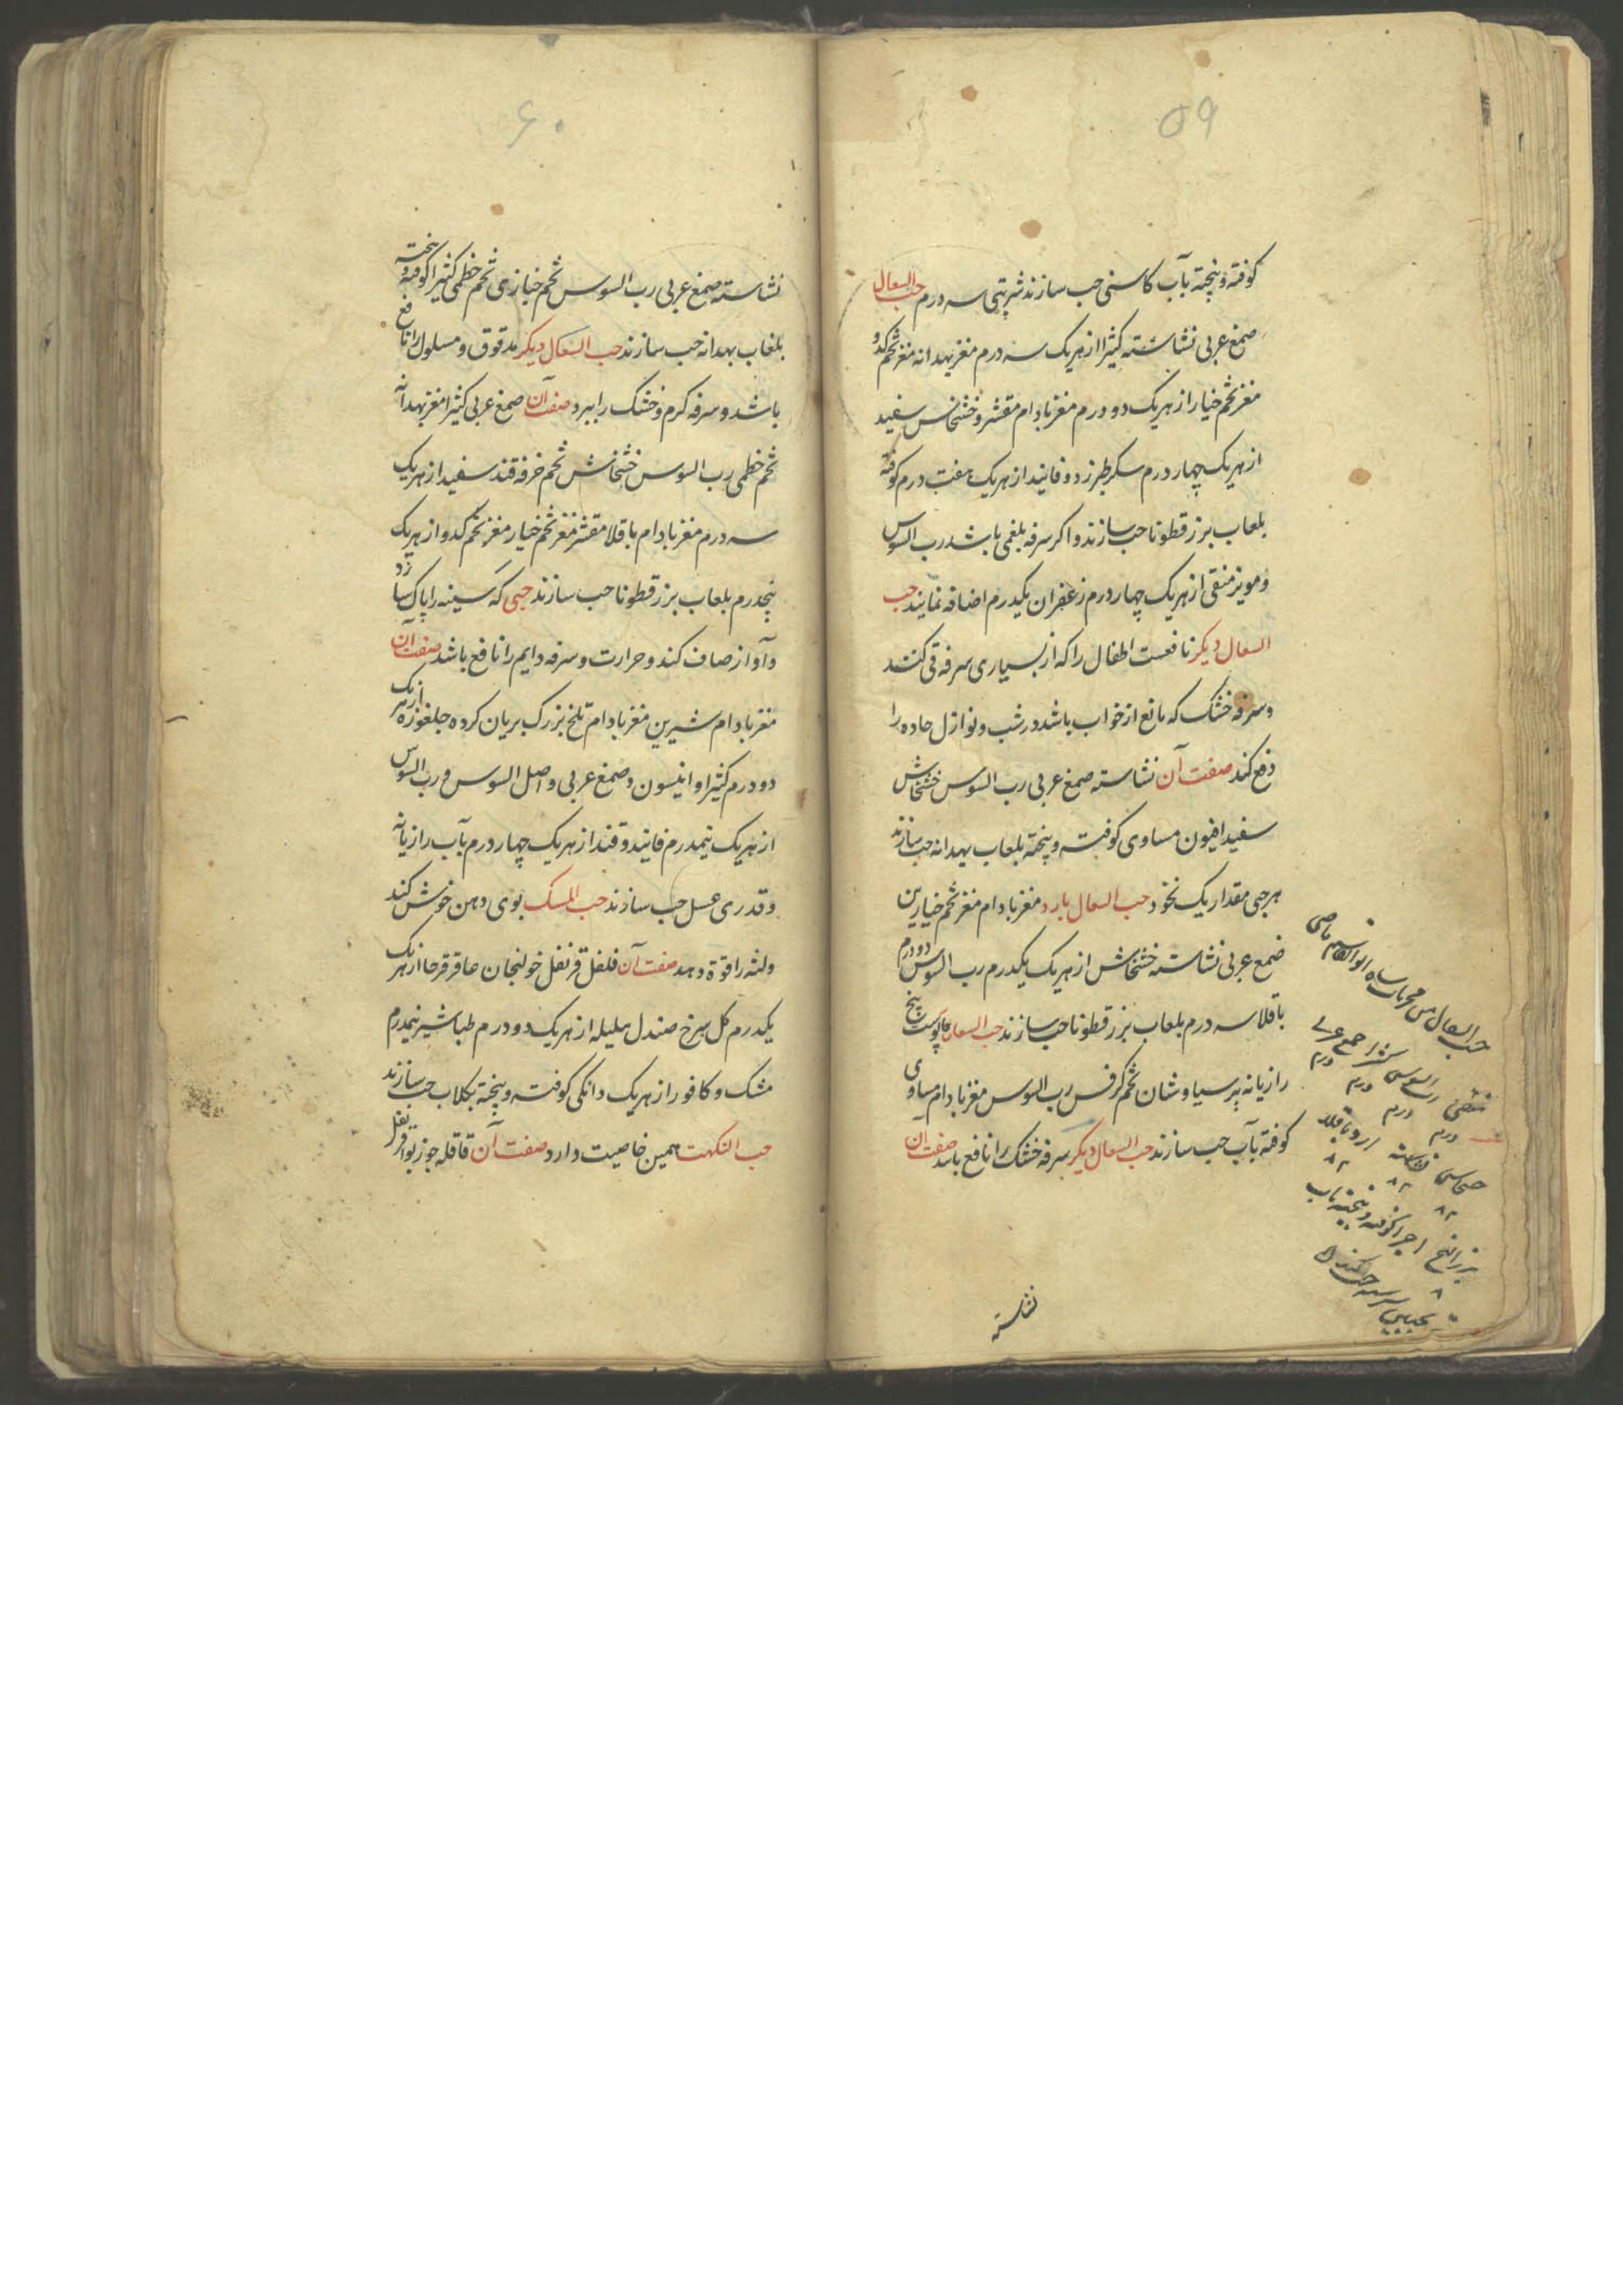 ۵۹
کوفته و پنجته بآب کاسنی حب سازند شربتی سه درم حب السعال
صمغ عربی نشاسته کثیرا از هریک سه درم مغز بهدانه مغز تخم کدو
مغز تخم خیار از هریک دو درم مغز بادام مقشر و خشخاش سفید
از هریک چهار درم سکر طبرزد و فانید از هریک هفت درم کوفته
بلعاب بزرقطونا حب سازند و اکر سرفه بلغمی باشد رب السوس
و مویز منقی از هریک چهار درم زعفران یکدرم اضافه نمایند حب
السعال دیکر نافعست اطفال را که از بسیاری سرفه قی کنند
و سرفه خشک که مانع از خواب باشد در شب و نوازل حاده را
دفع کند صفت آن نشاسته صمغ عربی رب السوس خشخاش
سفید افیون مساوی کوفته و پنجته بلعاب بهدانه حب سازند
هر حبی مقدار یک نخود حب السعال بارد مغز بادام مغز تخم خیارین
صمغ عربی نشاسته خشخاش از هریک یکدرم رب السوس دو درم
باقلا سه درم بلعاب بزرقطونا حب سازند حب السعال پوست بیخ
رازیانه پرسیاوشان تخم کرفس رب السوس مغز بادام مساوی
کوفته بآب حب سازند حب السعال دیکر سرفه خشک را نافع باشد صفت آن
نشاسته
حب السعال من مجربات شاه ابوالقاسم
رب السوس
درم درم درم درم
نشاسته
اجزا کوفته و پنجته بآب
۶۰
نشاسته صمغ عربی رب السوس تخم خبازی تخم خطمی کثیرا کوفته و پنجته
بلغاب بهدانه حب سازند حب السعال دیکر مدقوق و مسلول را نافع
باشد و سرفه کرم و خشک را ببرد صفت آن صمغ عربی کثیرا مغز بهدانه
تخم خطمی رب السوس خشخاش تخم خرفه قند سفید از هریک
سه درم مغز بادام باقلا مقشر مغز تخم خیار مغز تخم کدو از هریک
پنجدرم بلعاب بزرقطونا حب سازند حبی که سینه را پاک سازد
و آواز صاف کند و حرارت و سرفه دایم را نافع باشد صفت آن
مغز بادام شیرین مغز بادام تلخ بزرک بریان کرده جلغوزه از هریک
دو درم کثیرا و انیسون و صمغ عربی و اصل السوس و رب السوس
از هریک نیمدرم فانید و قند از هریک چهار درم بآب رازیانه
و قدری عسل حب سازند حب المسک بوی دهن خوش کند
و لثه را قوة دهد صفت آن فلفل قرنفل خولنجان عاقرقرحا از هریک
یکدرم کل سرخ صندل هلیله از هریک دو درم طباشیر نیمدرم
مشک و کافور از هریک دانکی کوفته و پنجته بکلاب حب سازند
حب النکهت همین خاصیت دارد صفت آن قاقله جوزبوا قرنفل